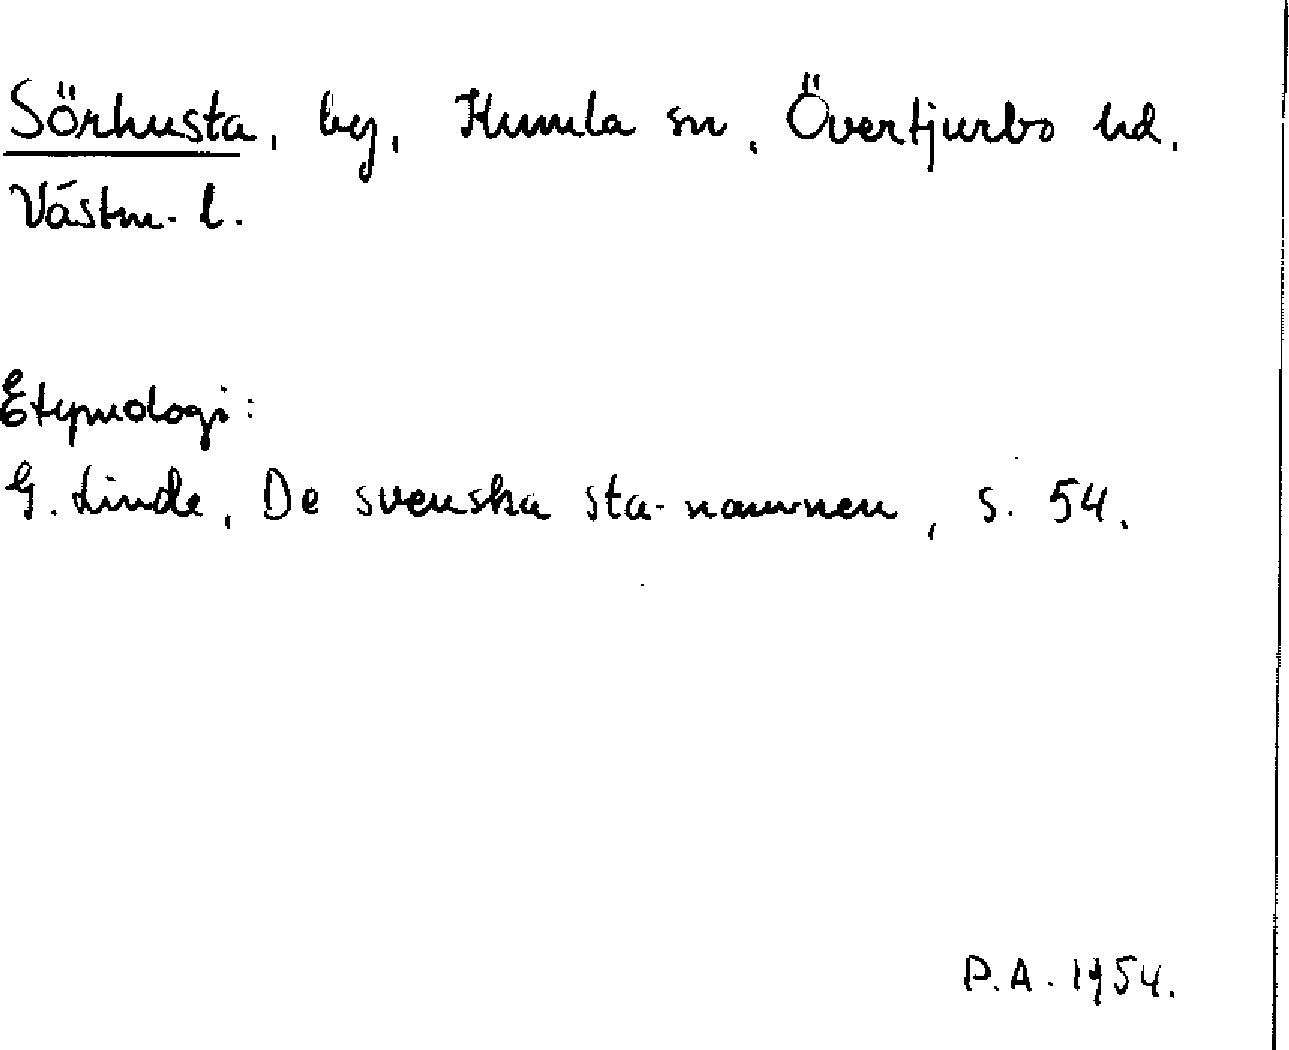 Sörhusta, by, Kumla sn, Övertjurbo hd.
Västm. l.
Etymologi:
G. Linde, De svenska sta-namnen, s. 54.
P.A. 1954.